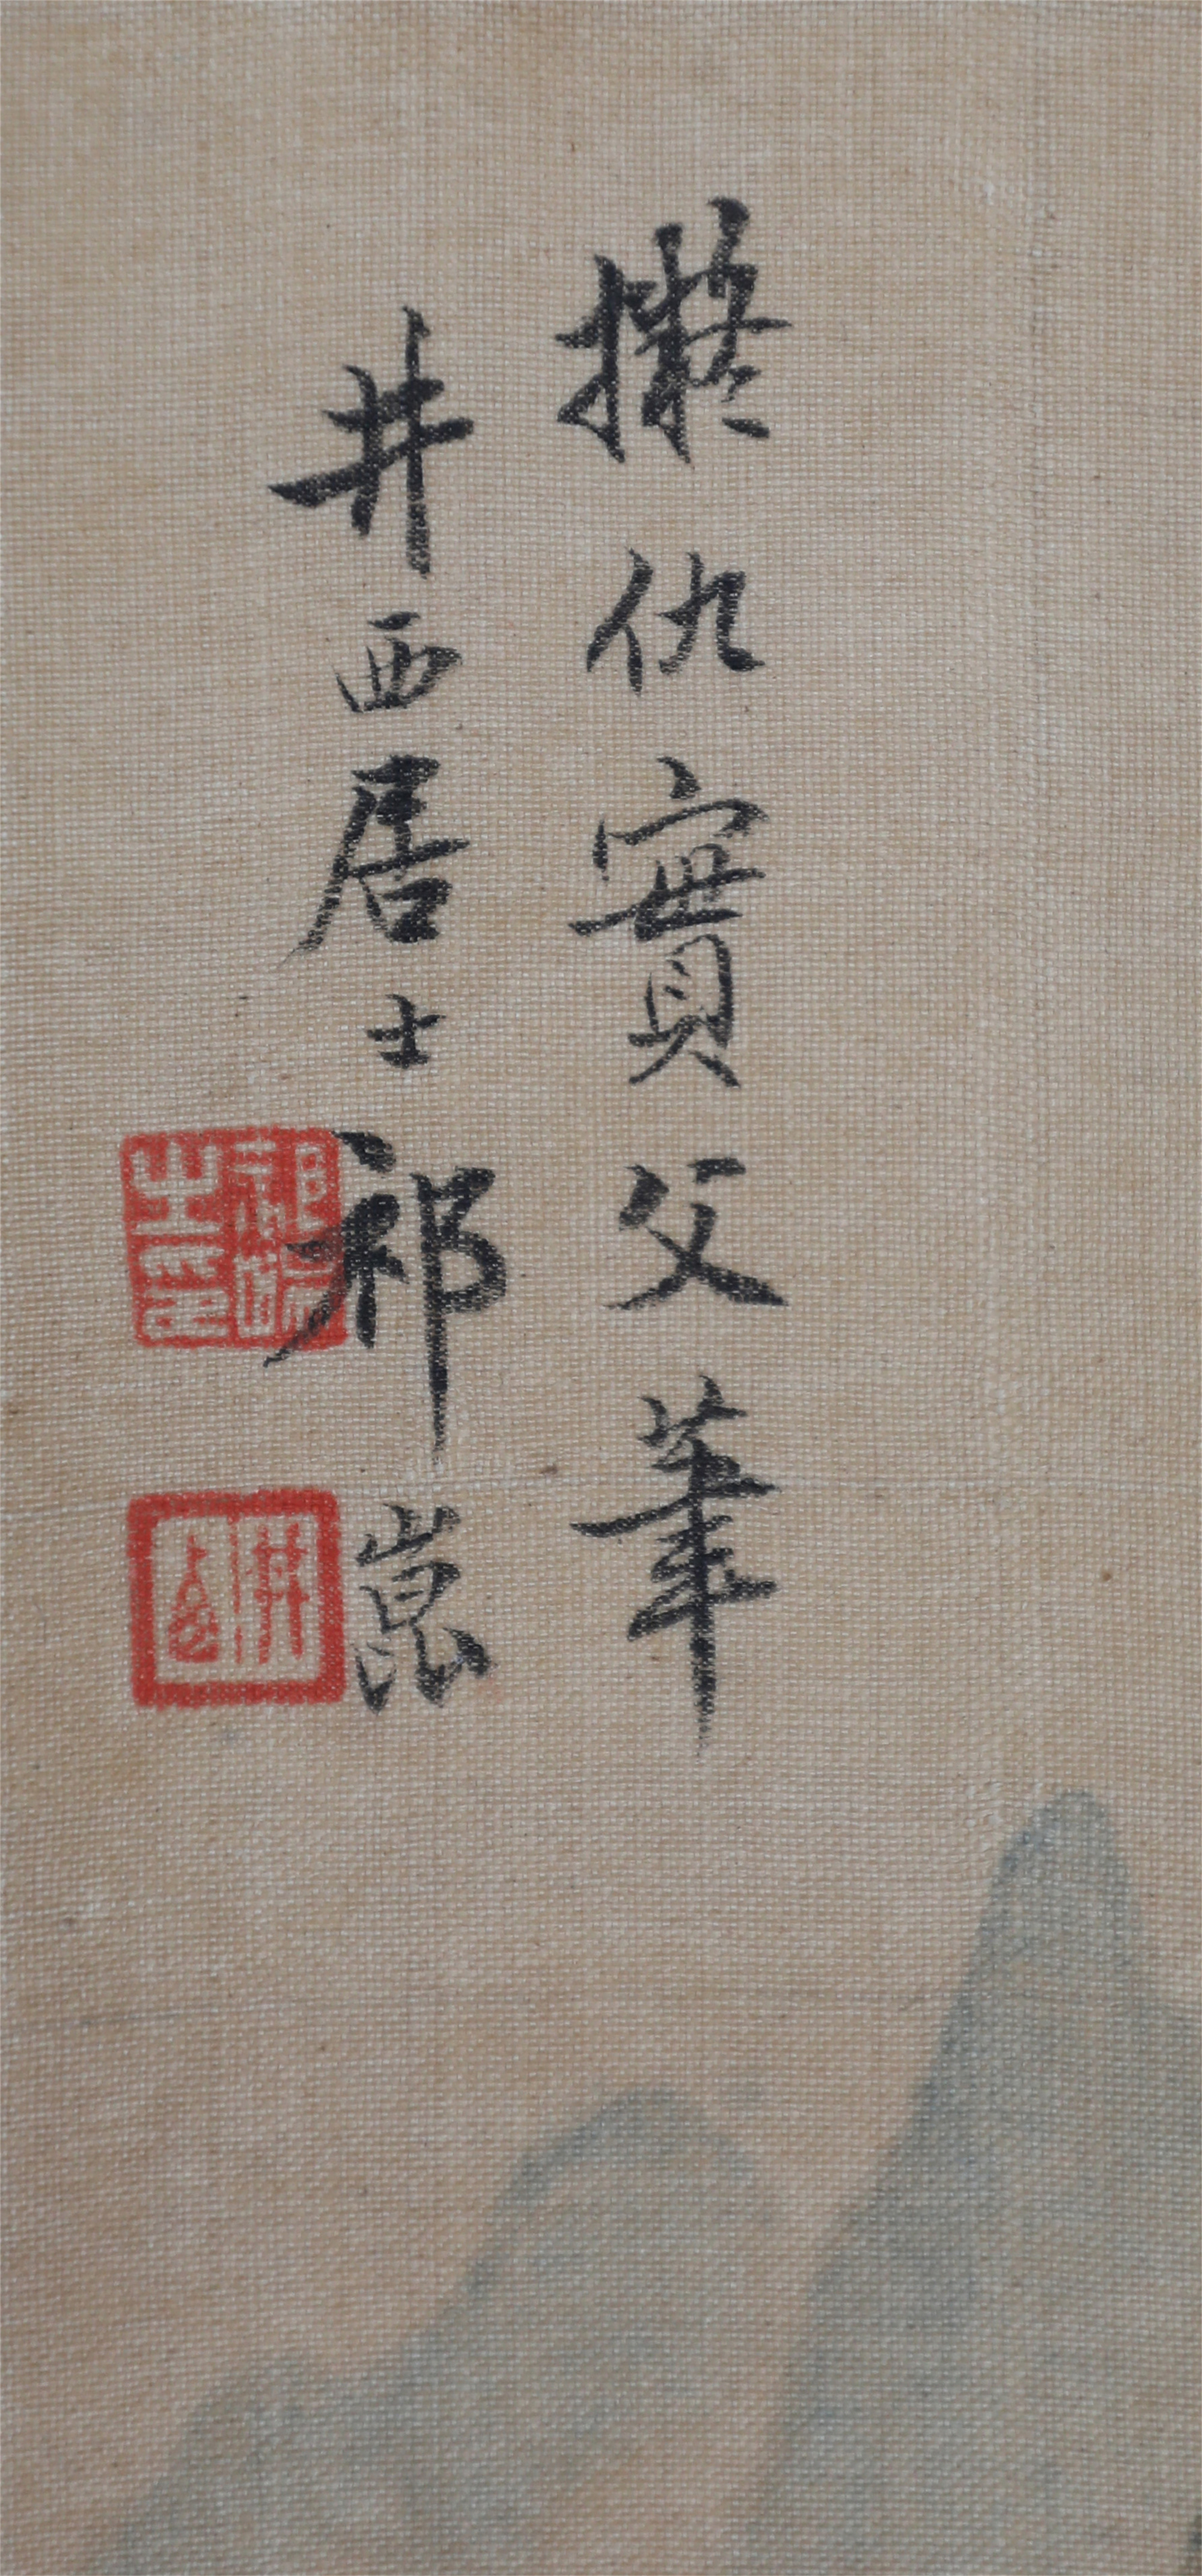 擬仇實父筆
井西居士祁崑
祁崑之印
井西